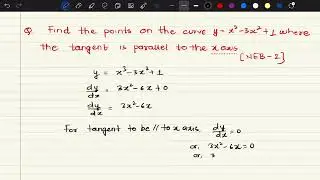 Q. Find the points on the curve y=x³-3x²+1 where
the tangent is parallel to the x axis.
[NEB-2]
y = x³-3x²+1
dy/dx = 3x²-6x+0
dy/dx = 3x²-6x
For tangent to be // to x axis, dy/dx = 0
or, 3x²-6x=0
or, 3